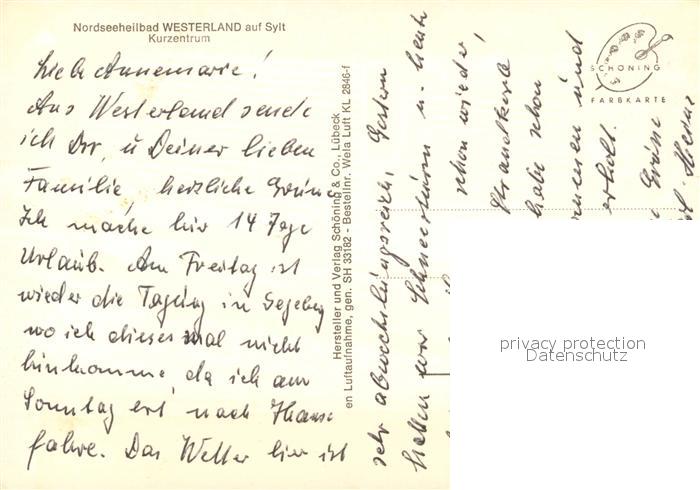 Nordseeheilbad WESTERLAND auf Sylt
Kurzentrum
Liebe Annemarie!
Aus Westerland sende
ich Dir, u Deiner lieben
Familie, herzliche Grüsse
Ich mache hier 14 Tage
Urlaub. Am Freitag ist
wieder die Tagung in Segeberg
wo ich dieses mal nicht
hinkomme, da ich am
Sonntag erst nach Hause
fahre. Das Wetter hier ist
sehr abwechslungsreich, Gestern
hatten wir Schneesturm u. heute
schon wieder,
Strandkorb
habe schon
und
erholt.
Grüsse
Hersteller und Verlag Schöning & Co., Lübeck
en Luftaufnahme, gen. SH 33182 - Bestellnr. Wela Luft KL 2846-f
SCHÖNING
FARBKARTE
privacy protection
Datenschutz